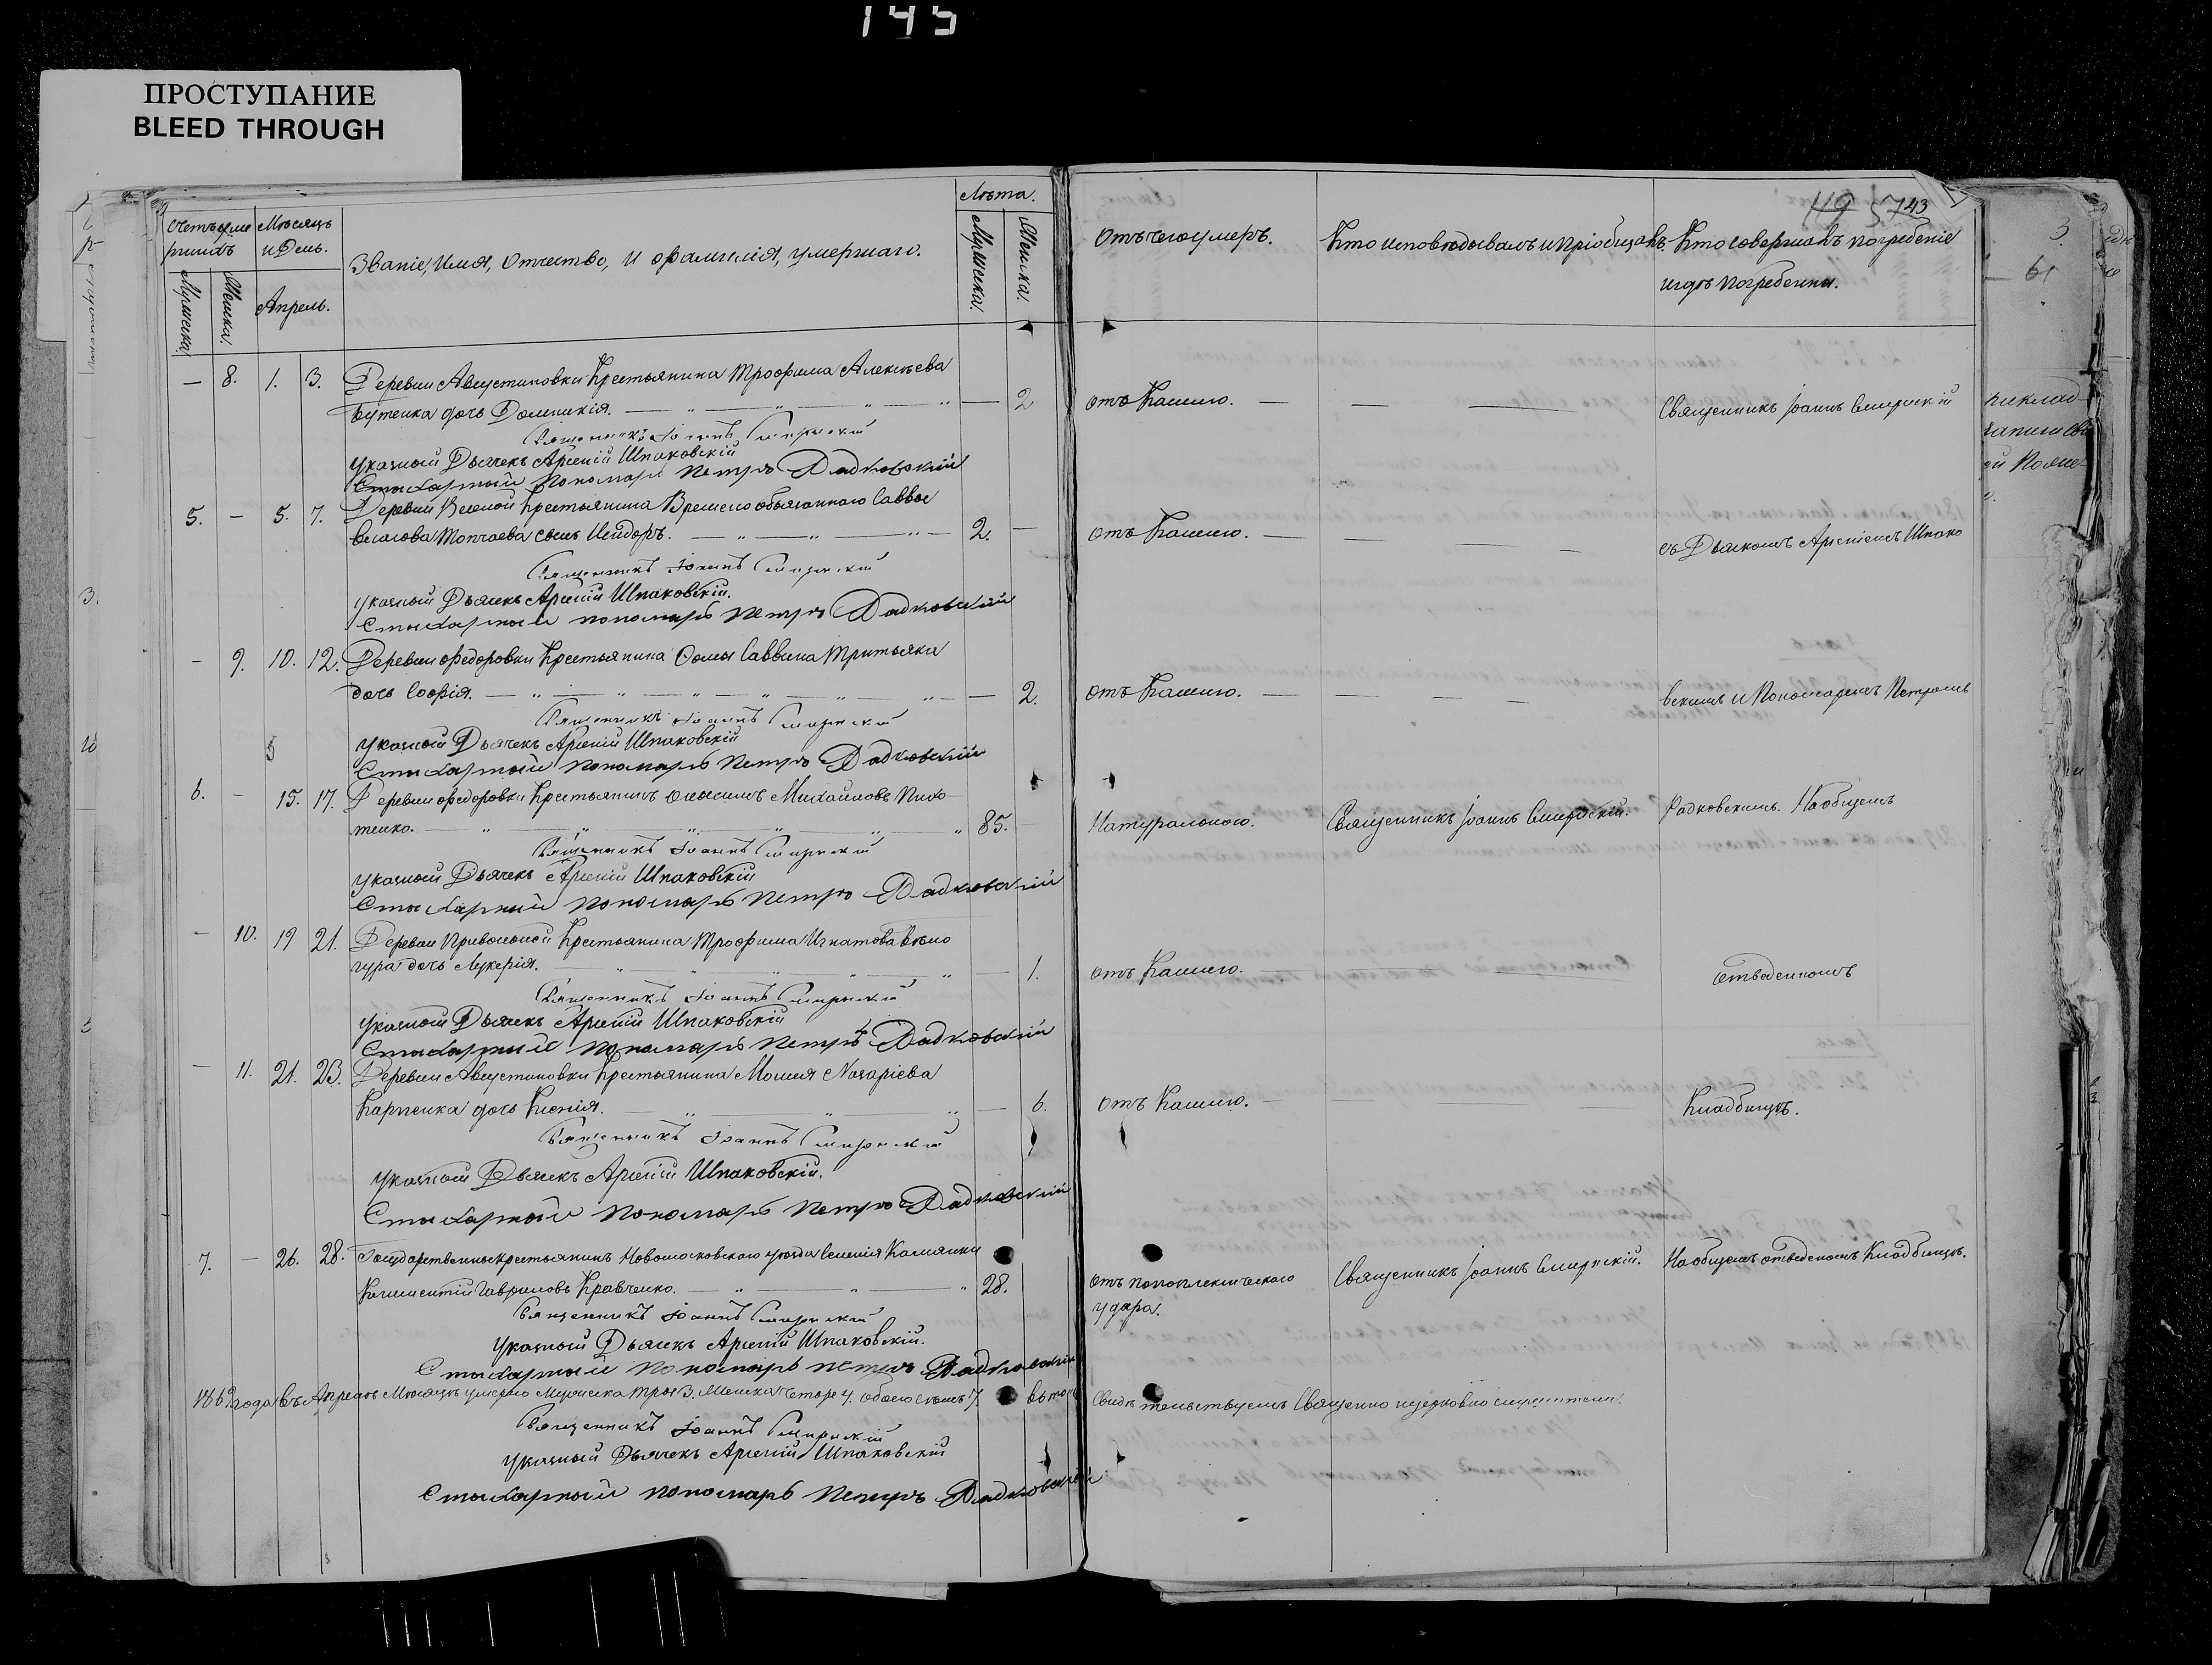 145
ПРОСТУПАНИЕ
BLEED THROUGH
49 57 43
Счетъ уме
ршихъ
Мужеска.
Женска.
Мѣсяцъ
и День.
Апрель.
Званіе, Имя, Отчество, и фамилія, умершаго.
Лѣта.
Мужеска.
Женска.
Отъ чего умеръ.
Кто исповѣдывалъ и пріобщалъ.
Кто совершалъ погребеніе
и гдѣ погребены.
— 8. 1. 3. Деревни Августиновки Крестьянина Трофима Алексѣева
Бутенка дочь Домникія. — 2 отъ Кашлю. — Священникъ Іоаннъ Смирнскій
Священникъ Іоаннъ Смирнскій
Указный Дьячекъ Арсеній Шпаковскій
Стихарный Пономарь Петръ Дадковскій
5. — 5. 7. Деревни Крестьянина Временно обязаннаго Саввы
Власова Топчаева сынъ Исидоръ. — 2. — отъ Кашлю. — съ Дьякомъ Арсеніемъ Шпако
Священникъ Іоаннъ Смирнскій
Указный Дьячекъ Арсеній Шпаковскій.
Стихарный пономарь Петръ Дадковскій
— 9. 10. 12. Деревни Федоровки Крестьянина Фомы Саввина Тритьяка
дочь Софія. — 2. отъ Кашлю. — вскимъ и Пономаремъ Петромъ
Священникъ Іоаннъ Смирнскій
Указный Дьячекъ Арсеній Шпаковскій
Стихарный Пономарь Петръ Дадковскій
6. — 15. 17. Деревни Федоровки Крестьянинъ Михайловъ Пихо
тенко. — 85. — Натурального. Священникъ Іоаннъ Смирнскій. Радковскимъ. На общемъ
Священникъ Іоаннъ Смирнскій
Указный Дьячекъ Арсеній Шпаковскій
Стихарный Пономарь Петръ Дадковскій
— 10. 19 21. Деревни Привольной Крестьянина Трофима Игнатова
дочь Лукерія. — 1. отъ Кашлю. — отведенномъ
Священникъ Іоаннъ Смирнскій
Указный Дьячекъ Арсеній Шпаковскій
Стихарный Пономарь Петръ Дадковскій
— 11. 21. 23. Деревни Августиновки Крестьянина Моисея Назаріева
Карпенка дочь Ксенія. — 6. отъ Кашлю. — Кладбищѣ.
Священникъ Іоаннъ Смирнскій
Указный Дьячекъ Арсеній Шпаковскій.
Стихарный Пономарь Петръ Дадковскій
7. — 26. 28. Государственный Крестьянинъ Новомосковскаго уѣзда Селенія Камянки
Климентій Гавриловъ Кравченко. — 28. Отъ Апоплексическаго Священникъ Іоаннъ Смирнскій. На общемъ отведеномъ Кладбищѣ.
удара.
Священникъ Іоаннъ Смирнскій
Указный Дьячекъ Арсеній Шпаковскій.
Стихарный Пономарь Петръ Дадковскій
1869 года въ Апрелѣ Мѣсяцѣ умерло Мужеска три 3. Женска Четыре 4. обоего 7. въ томъ Свидѣтельствуемъ Священно и церковно служители.
Священникъ Іоаннъ Смирнскій
Указный Дьячекъ Арсеній Шпаковскій
Стихарный пономарь Петръ Дадковскій